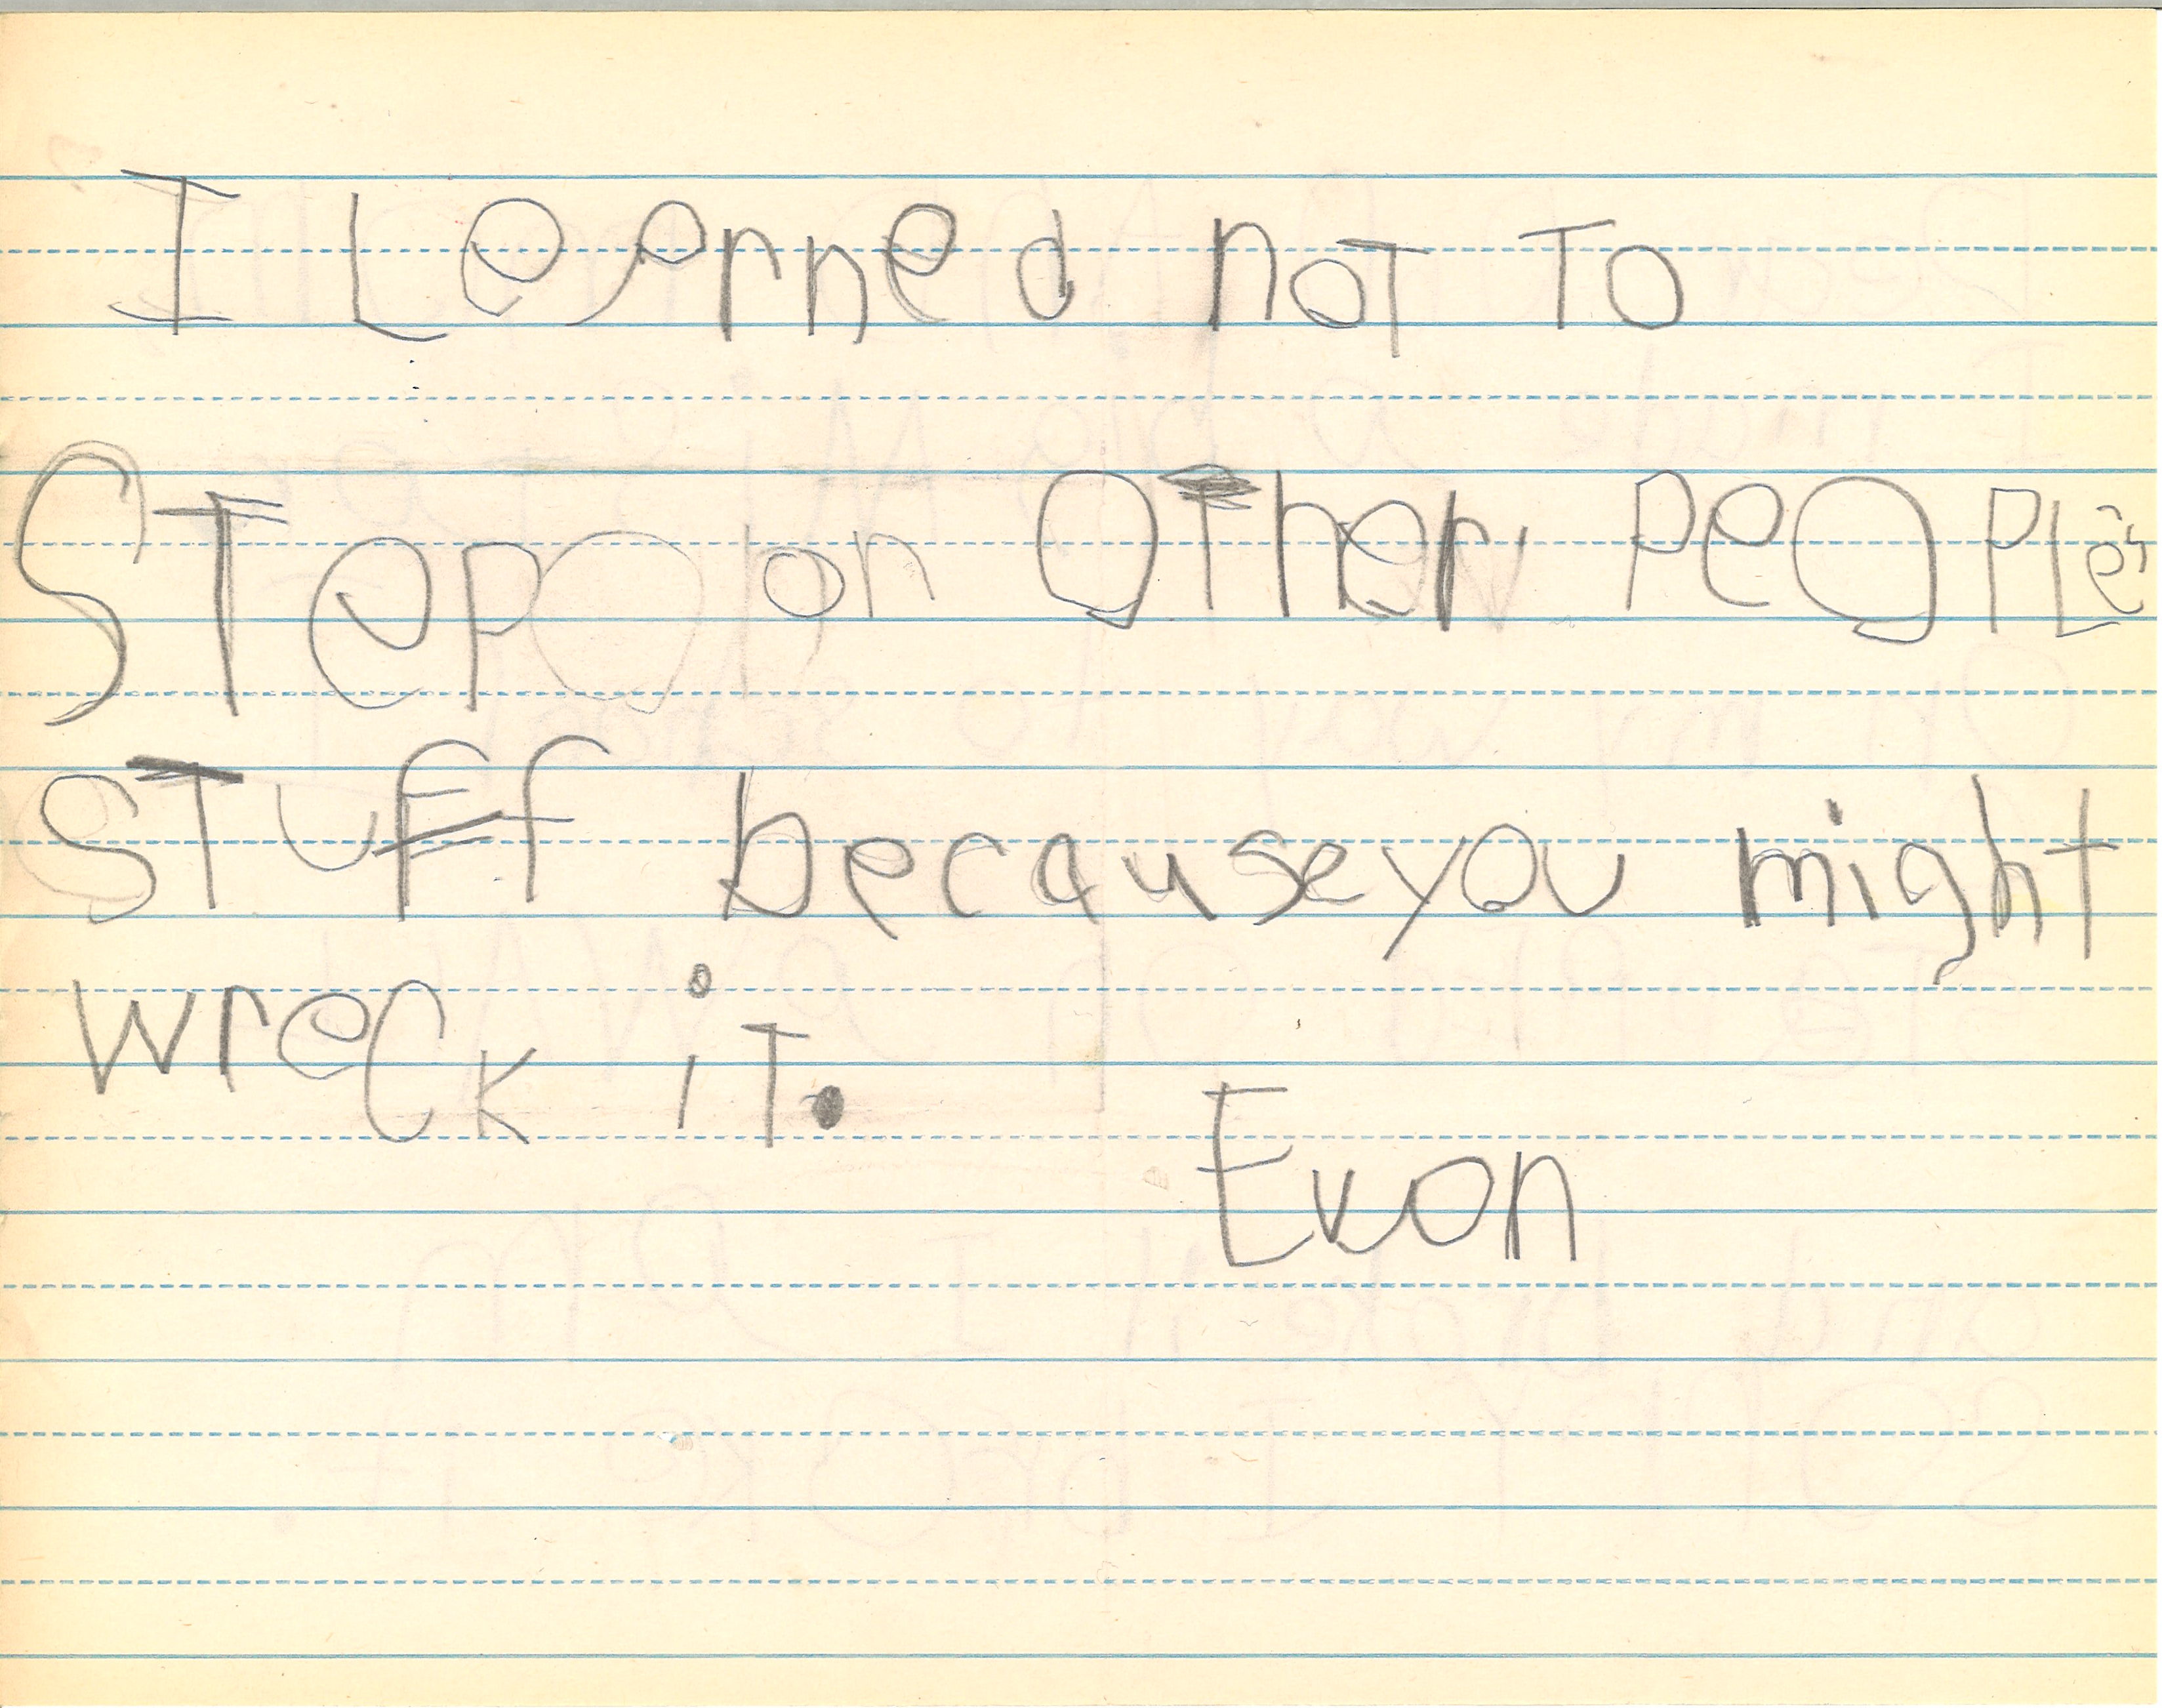 I Leerned noT To
STep on OTher PeOPLe's
STuff becauseyou might
wreCk iT.
Evon